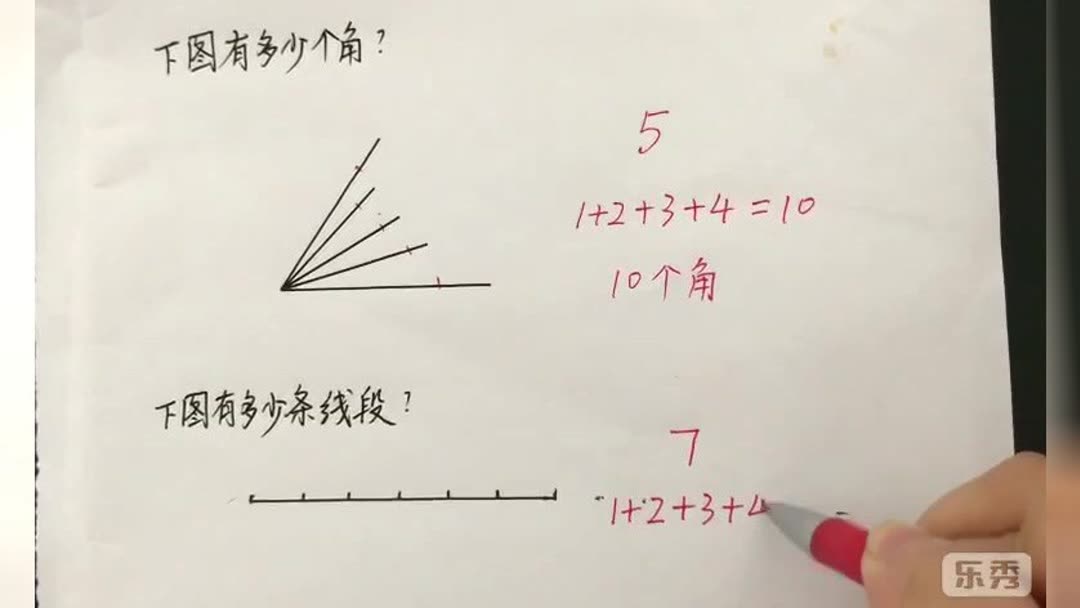 下图有多少个角?
5
1+2+3+4=10
10个角
下图有多少条线段?
7
1+2+3+4
乐秀